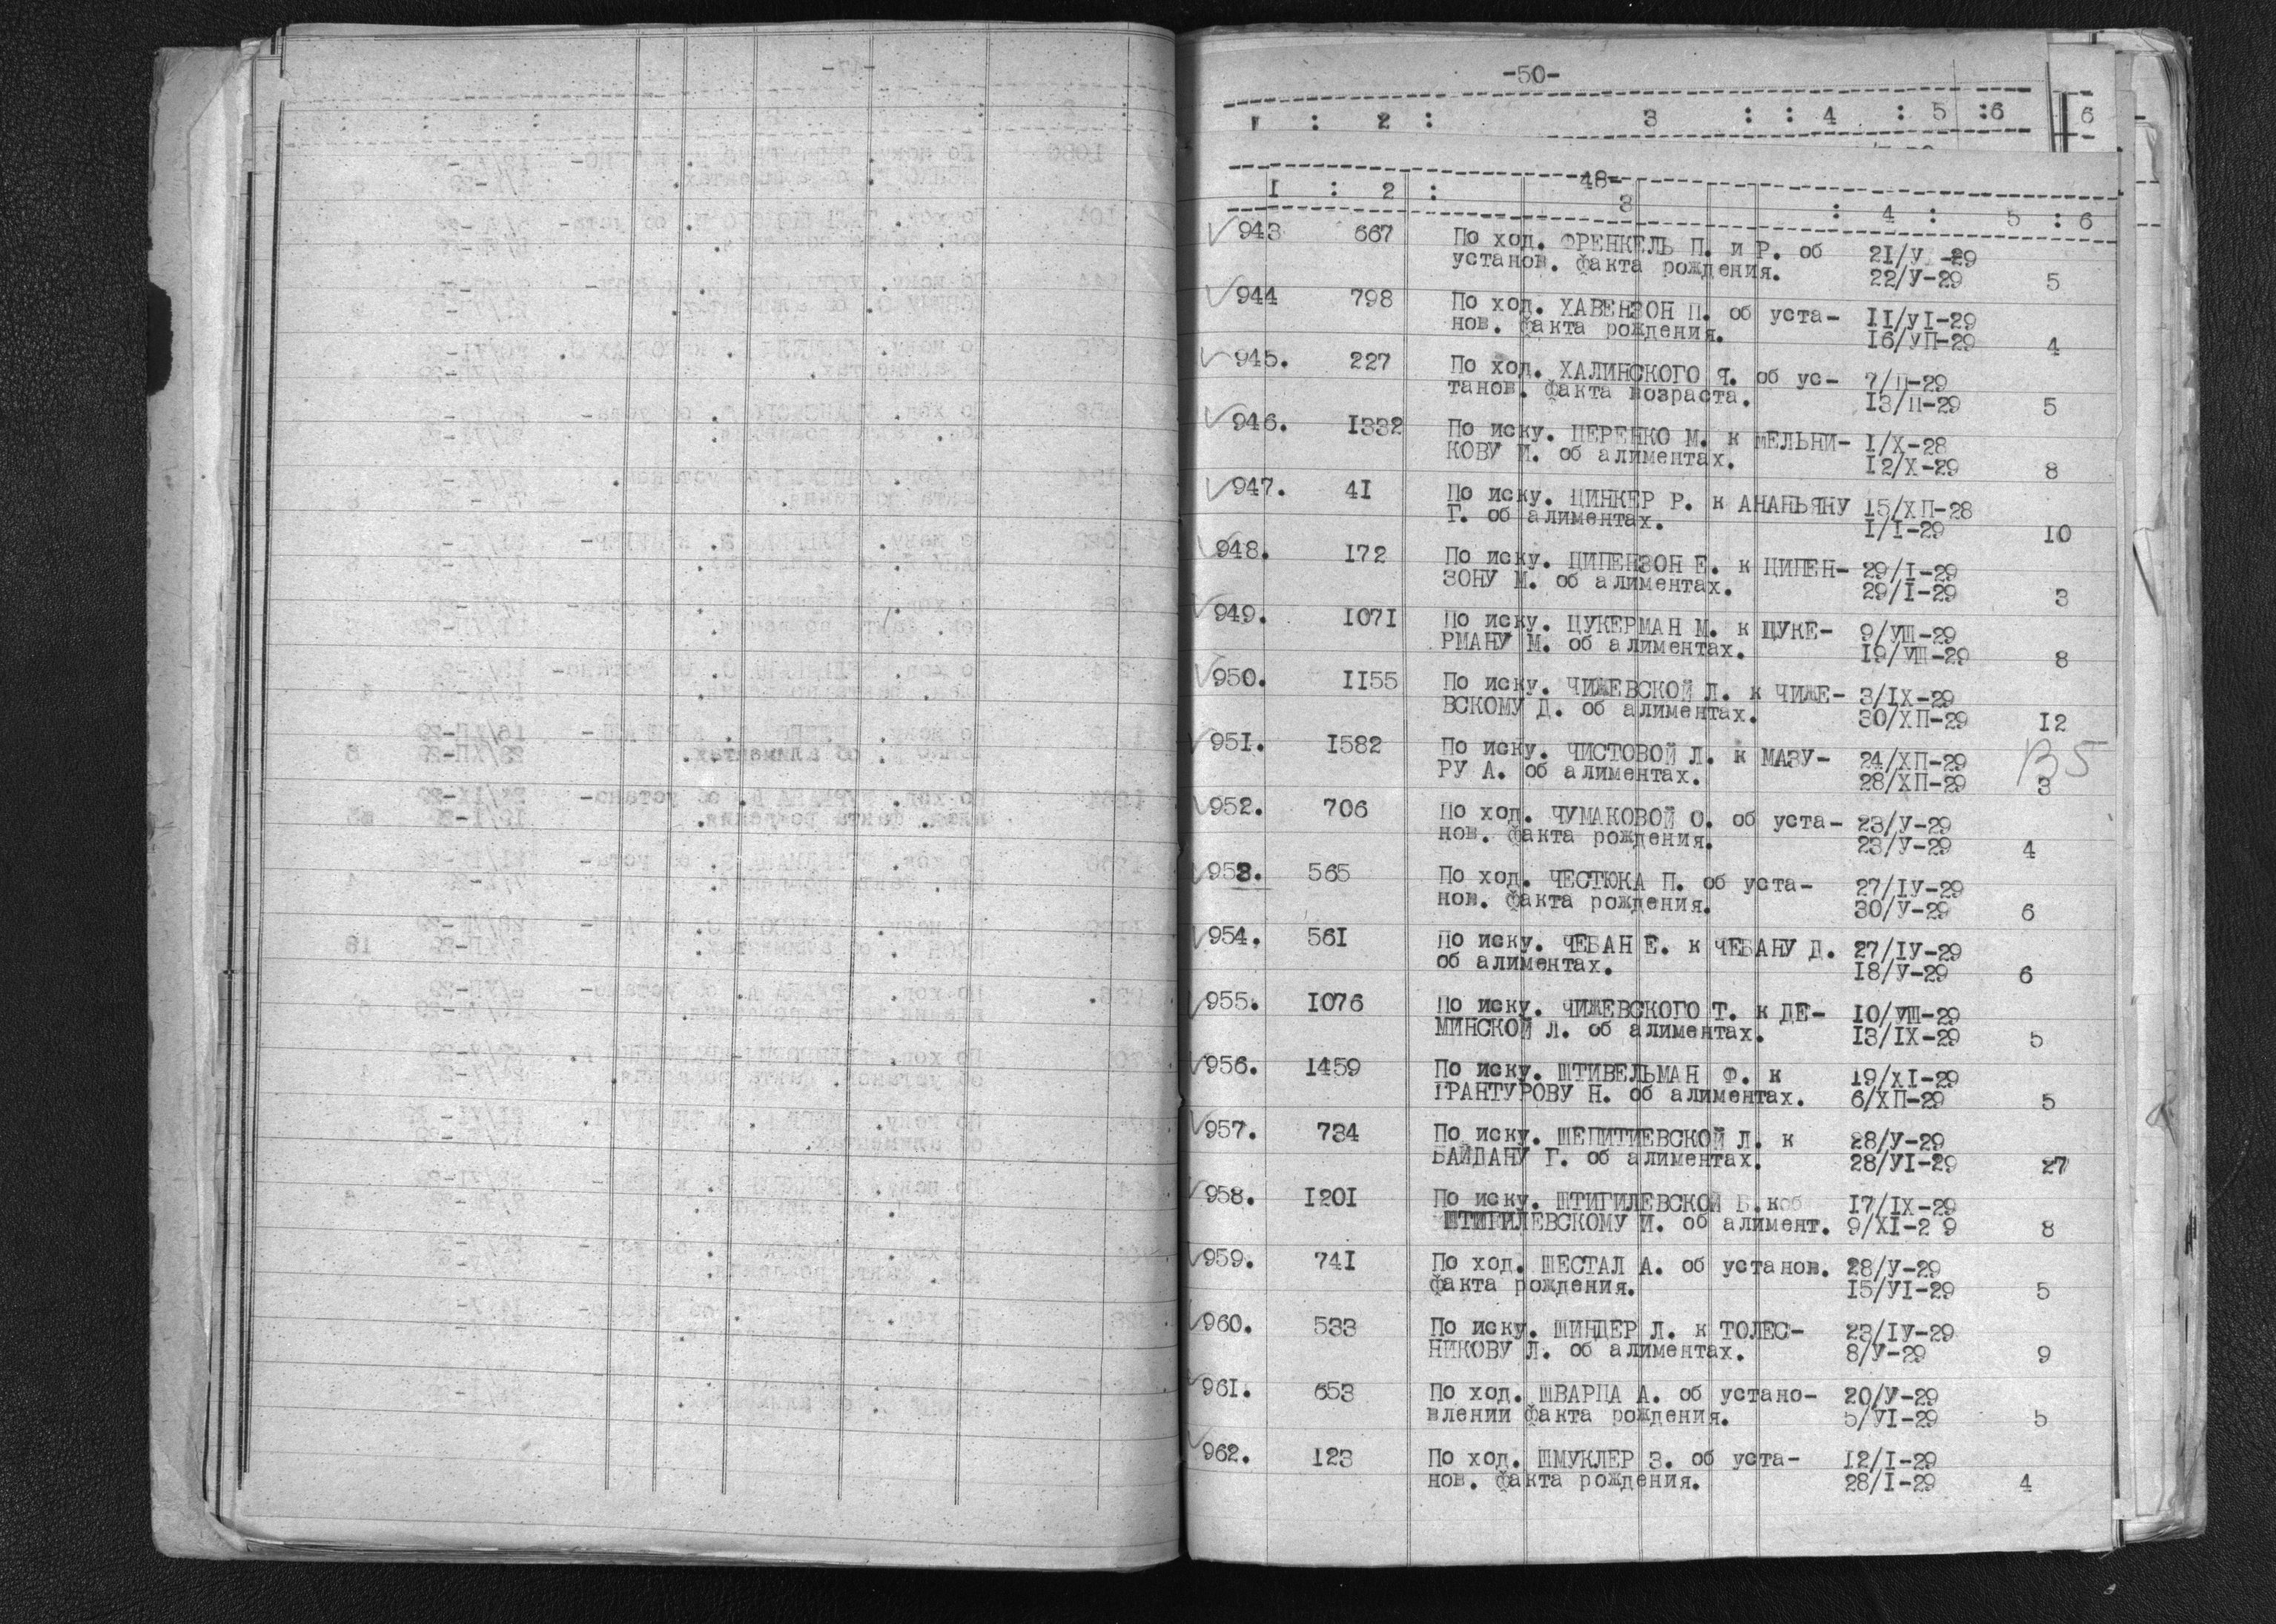 -50-
I : 2 : 3 : : 4 : 5 :6
6
-48-
I : 2 : 3 : 4 : 5 : 6
943 667 По ход. ФРЕНКЕЛЬ П. и Р. об 21/У -29
установ. факта рождения. 22/У-29 5
944 798 По ход. ХАВЕНЗОН П. об уста- II/УI-29
нов. факта рождения. 16/УП-29 4
945. 227 По ход. ХАЛИНСКОГО Я. об ус- 7/П-29
танов. факта возраста. I3/П-29 5
946. I332 По иску. ЦЕРЕНКО М. к МЕЛЬНИ- I/X-28
КОВУ И. об алиментах. I2/X-29 8
947. 4I По иску. ЦИНКЕР Р. к АНАНЬЯНУ 15/ХП-28
Г. об алиментах. I/I-29 10
948. I72 По иску. ЦИПЕНЗОН Е. к ЦИПЕН- 29/I-29
ЗОНУ М. об алиментах. 29/I-29 3
949. I07I По иску. ЦУКЕРМАН М. к ЦУКЕ- 9/УШ-29
РМАНУ М. об алиментах. I9/УШ-29 8
950. II55 По иску. ЧИЖЕВСКОЙ Л. к ЧИЖЕ- 3/IX-29
ВСКОМУ Д. об алиментах. 30/ХП-29 I2
95I. I582 По иску. ЧИСТОВОЙ Л. к МАЗУ- 24/ХП-29
РУ А. об алиментах. 28/ХП-29 3
952. 706 По ход. ЧУМАКОВОЙ О. об уста- 23/У-29
нов. факта рождения. 23/У-29 4
953. 565 По ход. ЧЕСТЮКА П. об уста- 27/IУ-29
нов. факта рождения. 30/У-29 6
954. 56I По иску. ЧЕБАН Е. к ЧЕБАНУ Д. 27/IУ-29
об алиментах. I8/У-29 6
955. I076 По иску. ЧИЖЕВСКОГО Т. к ДЕ- I0/УШ-29
МИНСКОЙ Л. об алиментах. I3/IX-29 5
956. I459 По иску. ШТИВЕЛЬМАН Ф. к I9/XI-29
ГРАНТУРОВУ Н. об алиментах. 6/ХП-29 5
957. 734 По иску. ШЕПИТИЕВСКОЙ Л. к 28/У-29
БАЙДАНУ Г. об алиментах. 28/УI-29 27
958. I20I По иску. ШТИГИЛЕВСКОЙ Б. к I7/IX-29
ШТИГИЛЕВСКОМУ И. об алимент. 9/XI-2 9 8
959. 74I По ход. ШЕСТАЛ А. об установ. 28/У-29
факта рождения. I5/УI-29 5
960. 533 По иску. ШИНДЕР Л. к ТОЛЕС- 23/IУ-29
НИКОВУ Л. об алиментах. 8/У-29 9
96I. 653 По ход. ШВАРЦА А. об устано- 20/У-29
влении факта рождения. 5/УI-29 5
962. I23 По ход. ШМУКЛЕР З. об уста- I2/I-29
нов. факта рождения. 28/I-29 4